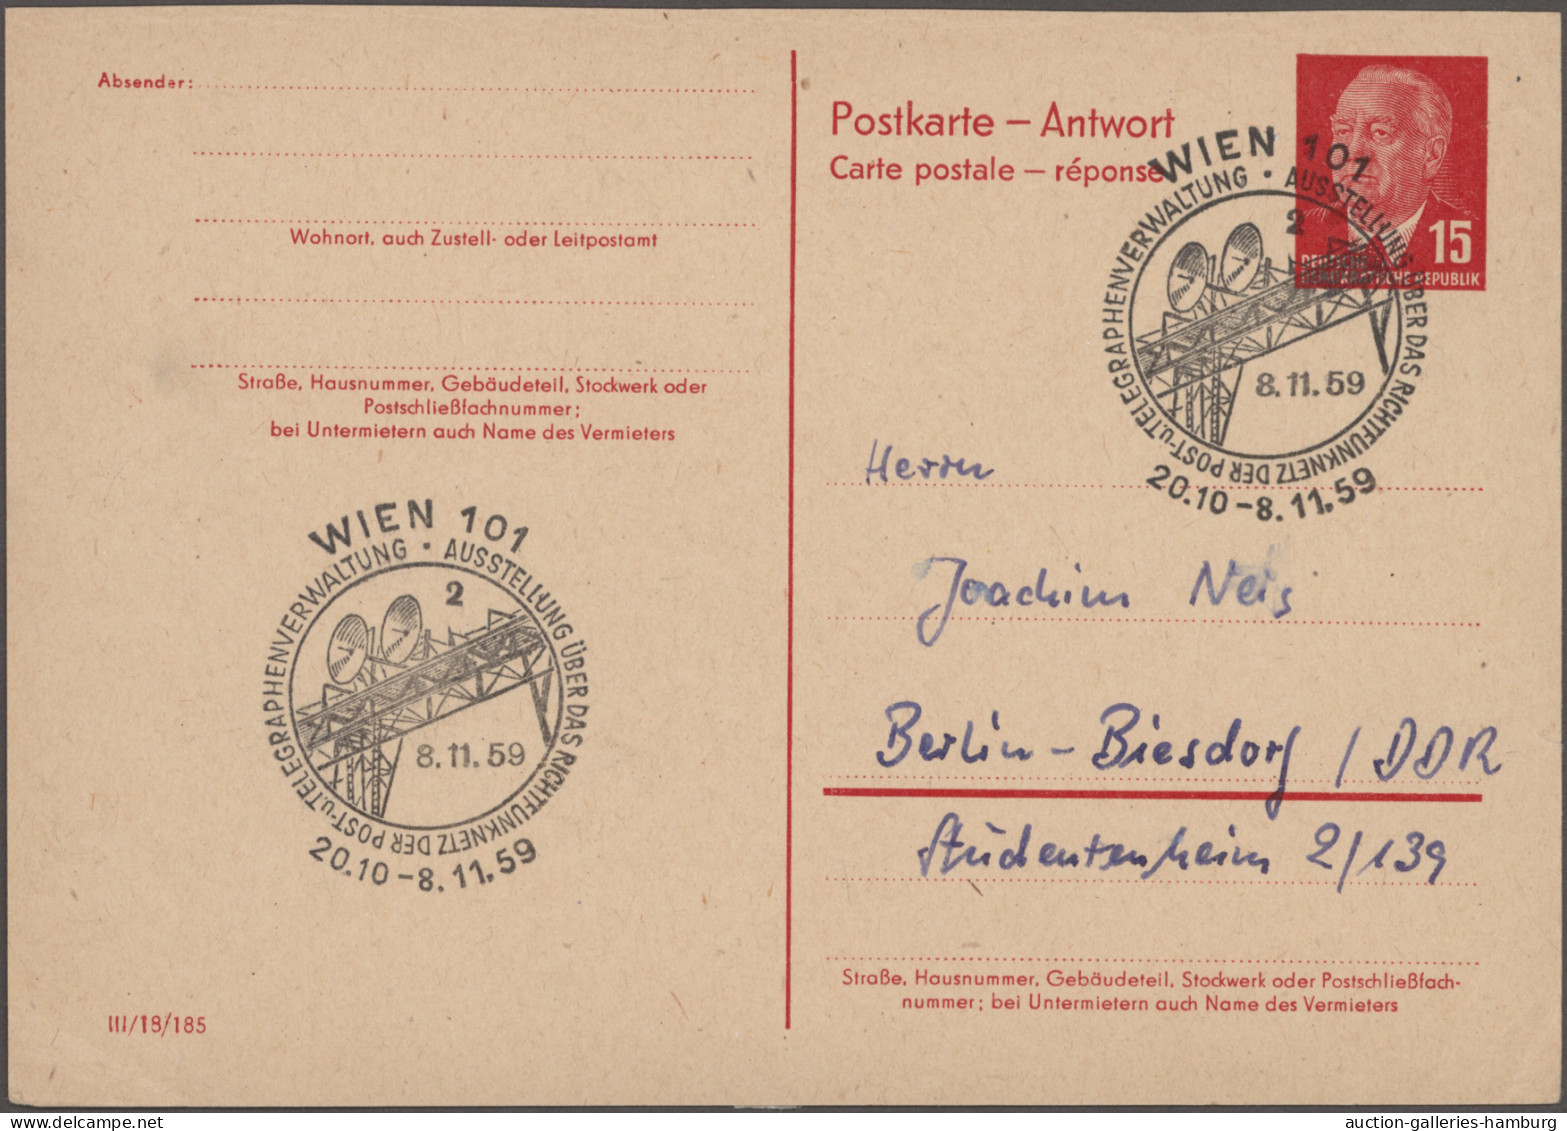 Absender:
Wohnort, auch Zustell- oder Leitpostamt
Straße, Hausnummer, Gebäudeteil, Stockwerk oder
Postschließfachnummer;
bei Untermietern auch Name des Vermieters
WIEN 101
POST-u.TELEGRAPHENVERWALTUNG • AUSSTELLUNG ÜBER DAS RICHTFUNKNETZ DER
2
8.11.59
20.10-8.11.59
III/18/185
Postkarte – Antwort
Carte postale – réponse
15
DEUTSCHE
DEMOKRATISCHE REPUBLIK
WIEN 101
POST-u.TELEGRAPHENVERWALTUNG • AUSSTELLUNG ÜBER DAS RICHTFUNKNETZ DER
2
8.11.59
20.10-8.11.59
Herrn
Joachim Neis
Berlin-Biesdorf / DDR
Studentenheim 2/139
Straße, Hausnummer, Gebäudeteil, Stockwerk oder Postschließfach-
nummer; bei Untermietern auch Name des Vermieters
auction-galleries-hamburg